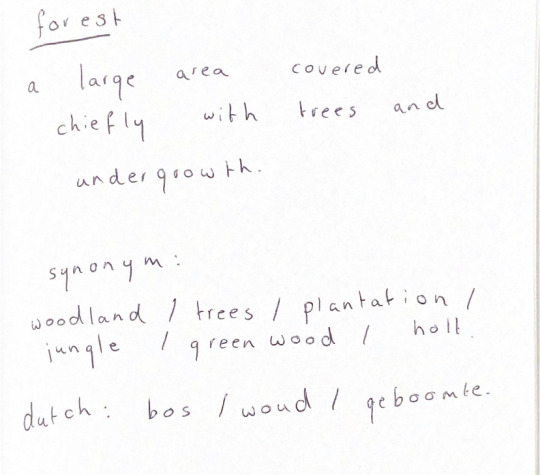 forest
a large area covered
chiefly with trees and
undergrowth.
synonym:
woodland / trees / plantation /
jungle / greenwood / holt.
dutch: bos / woud / geboomte.